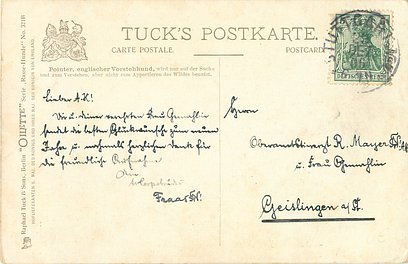 TUCK'S POSTKARTE.
CARTE POSTALE.
POSTCARD
Pointer, englischer Vorstehhund, wird nur auf der Suche
und zum Vorstehen, aber nicht zum Apportieren des Wildes benutzt.
Raphael Tuck & Sons, Berlin "OILETTE" Serie „Rasse-Hunde" No.
STUTTGART
DEUTSCHES REICH
Lieber A.H.!
Dir u. Deiner verehrten Frau Gemahlin
sendet die besten Glückwünsche zum neuen
Jahre u. nochmals herzlichen Dank für
die freundliche Aufnahme
Dein
Fraas
Herrn
Oberamtstierarzt R. Mayer
u. Frau Gemahlin
Geislingen a/St.